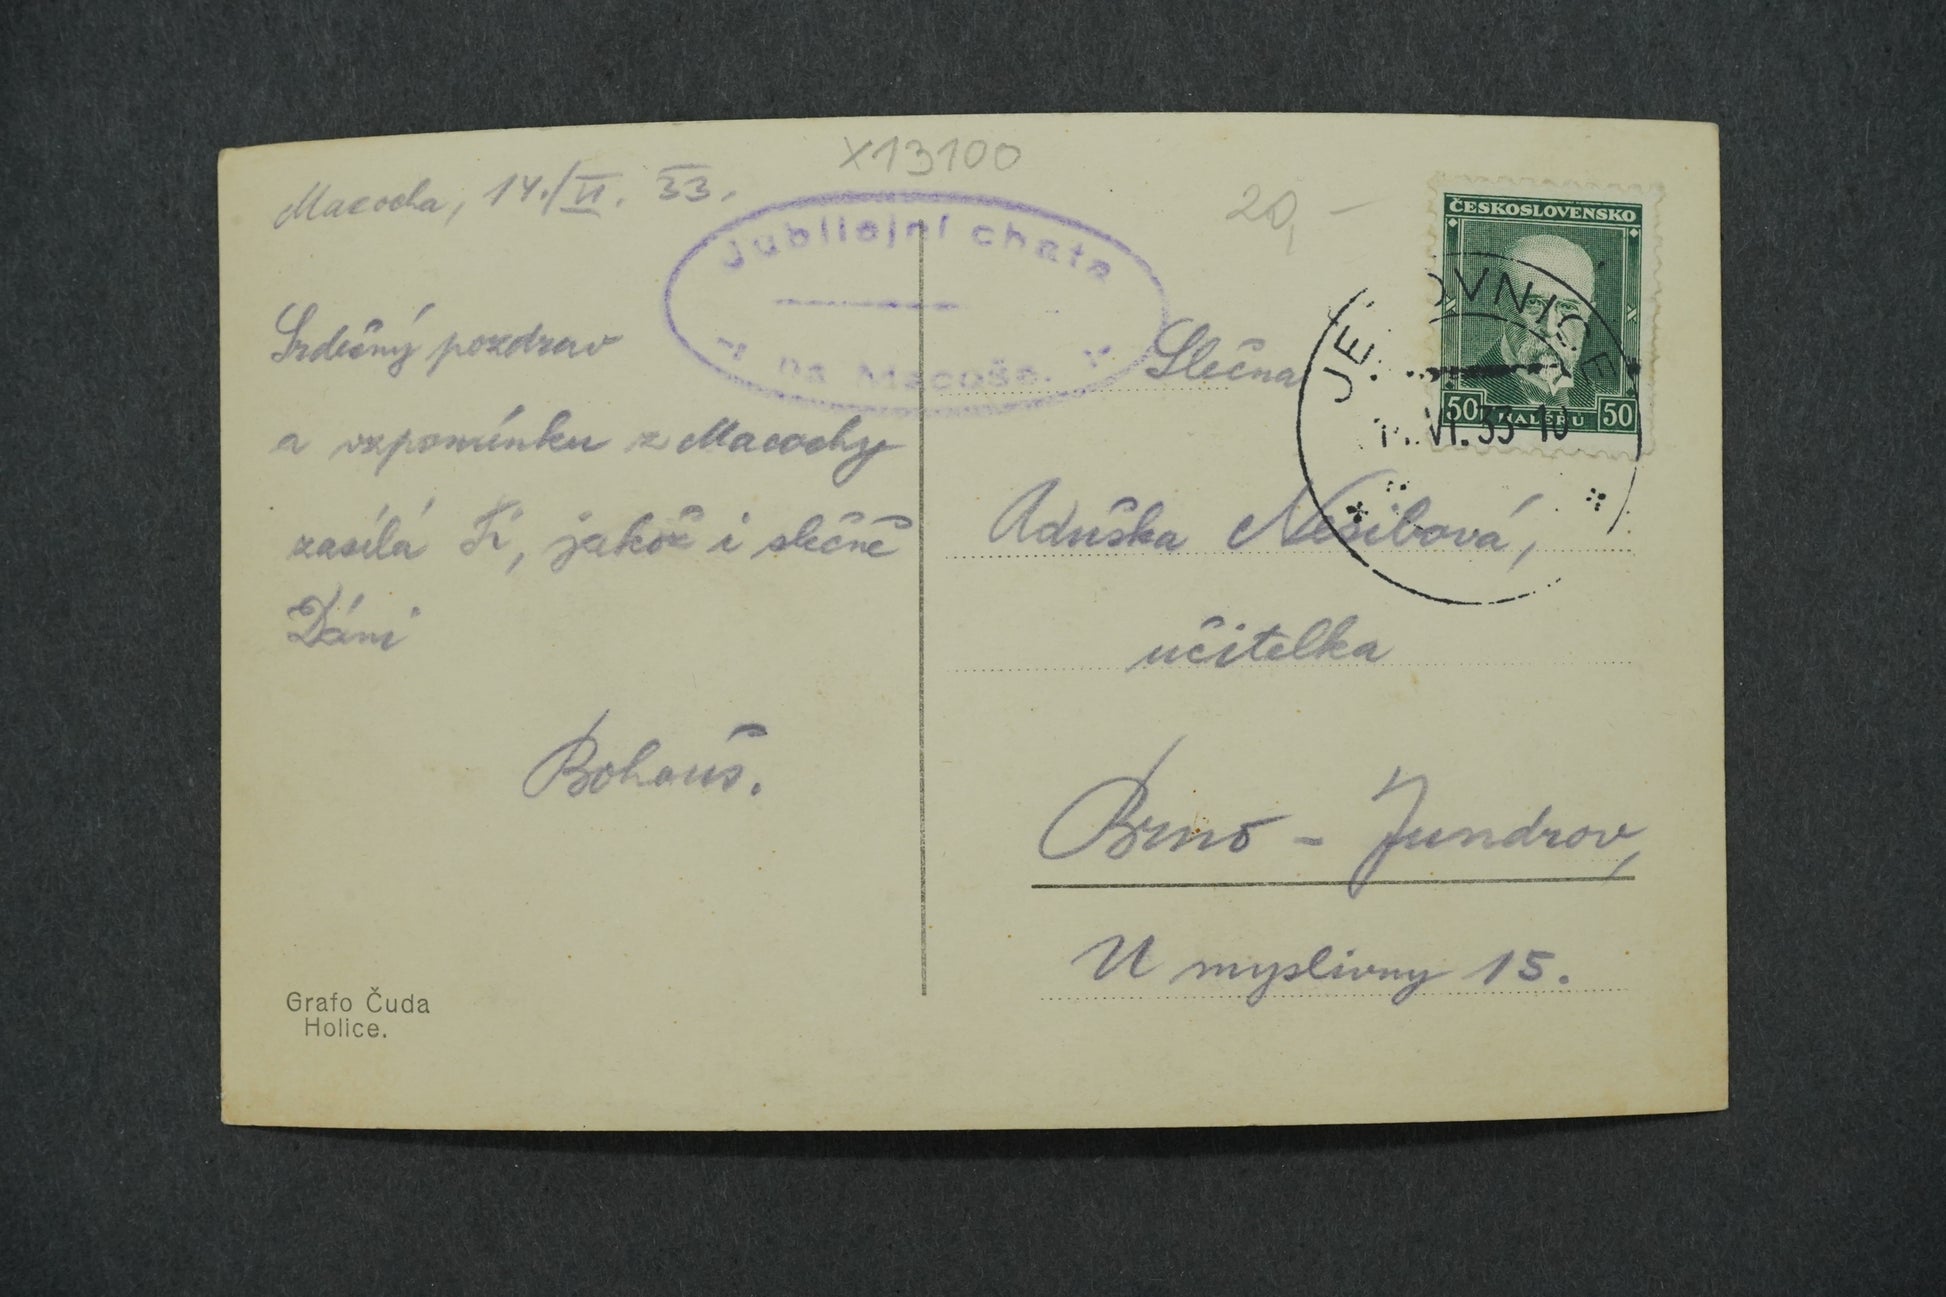 X13100
Macocha, 14./VI. 33.
20,-
Jubilejní chata
na Macoše.
ČESKOSLOVENSKO
50 HALÉŘŮ 50
JEDOVNICE
VI. 33-10
Srdečný pozdrav
a vzpomínku z Macochy
zasílá Ti, jakož i slečně
Dáni
Bohouš.
Slečna
Aduška Nesibová,
učitelka
Brno - Jundrov,
U myslivny 15.
Grafo Čuda
Holice.